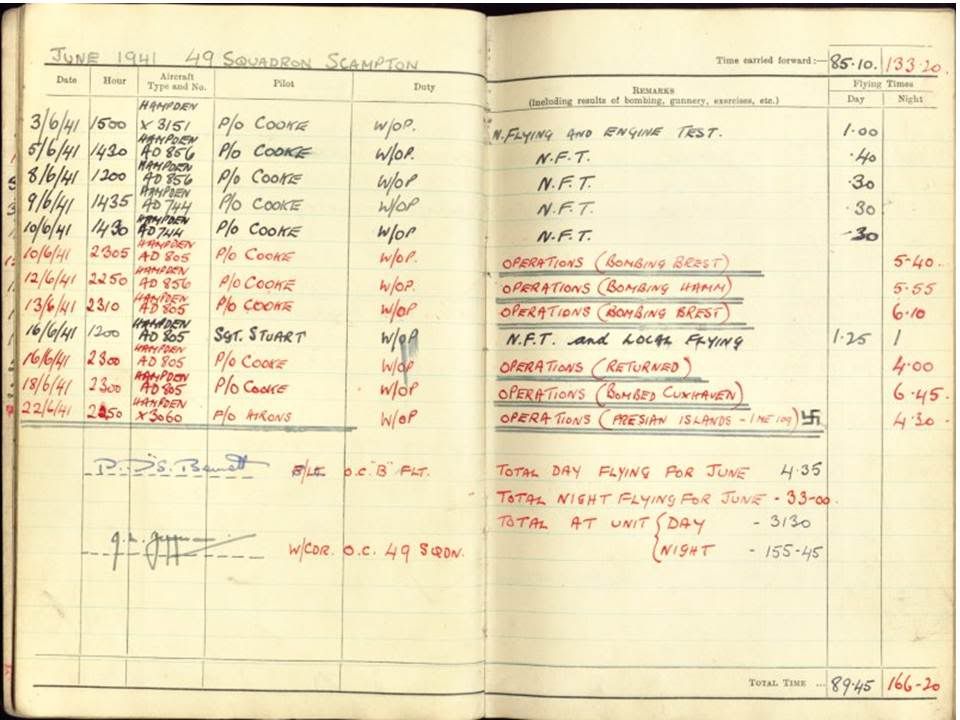 JUNE 1941 49 SQUADRON SCAMPTON
Time carried forward:— 85·10. 133·20.
Date Hour Aircraft Type and No. Pilot Duty REMARKS (Including results of bombing, gunnery, exercises, etc.) Flying Times Day Night
3/6/41 1500 HAMPDEN X 3151 P/O COOKE W/OP. N.FLYING AND ENGINE TEST. 1·00
5/6/41 1430 HAMPDEN AD 856 P/O COOKE W/OP. N.F.T. ·40
8/6/41 1200 HAMPDEN AD 856 P/O COOKE W/OP N.F.T. ·30
9/6/41 1435 HAMPDEN AD 744 P/O COOKE W/OP N.F.T. ·30
10/6/41 1430 HAMPDEN AD 744 P/O COOKE W/OP N.F.T. ·30
10/6/41 2305 HAMPDEN AD 805 P/O COOKE W/OP. OPERATIONS (BOMBING BREST) 5·40.
12/6/41 2250 HAMPDEN AD 856 P/O COOKE W/OP. OPERATIONS (BOMBING HAMM) 5·55
13/6/41 2310 HAMPDEN AD 805 P/O COOKE W/OP OPERATIONS (BOMBING BREST) 6·10
16/6/41 1200 HAMPDEN AD 805 SGT. STUART W/OP N.F.T. and LOCAL FLYING 1·25
16/6/41 2300 HAMPDEN AD 805 P/O COOKE W/OP OPERATIONS (RETURNED) 4·00
18/6/41 2300 HAMPDEN AD 805 P/O COOKE W/OP OPERATIONS (BOMBED CUXHAVEN) 6·45.
22/6/41 2250 HAMPDEN X3060 W/OP OPERATIONS (FRESIAN ISLANDS - 1 ME 109) 卐 4·30
F/LT. O.C. "B" FLT. TOTAL DAY FLYING FOR JUNE 4·35
TOTAL NIGHT FLYING FOR JUNE - 33-00.
TOTAL AT UNIT { DAY - 3130
W/CDR. O.C. 49 SQDN. NIGHT - 155-45
TOTAL TIME ... 89·45 166-20